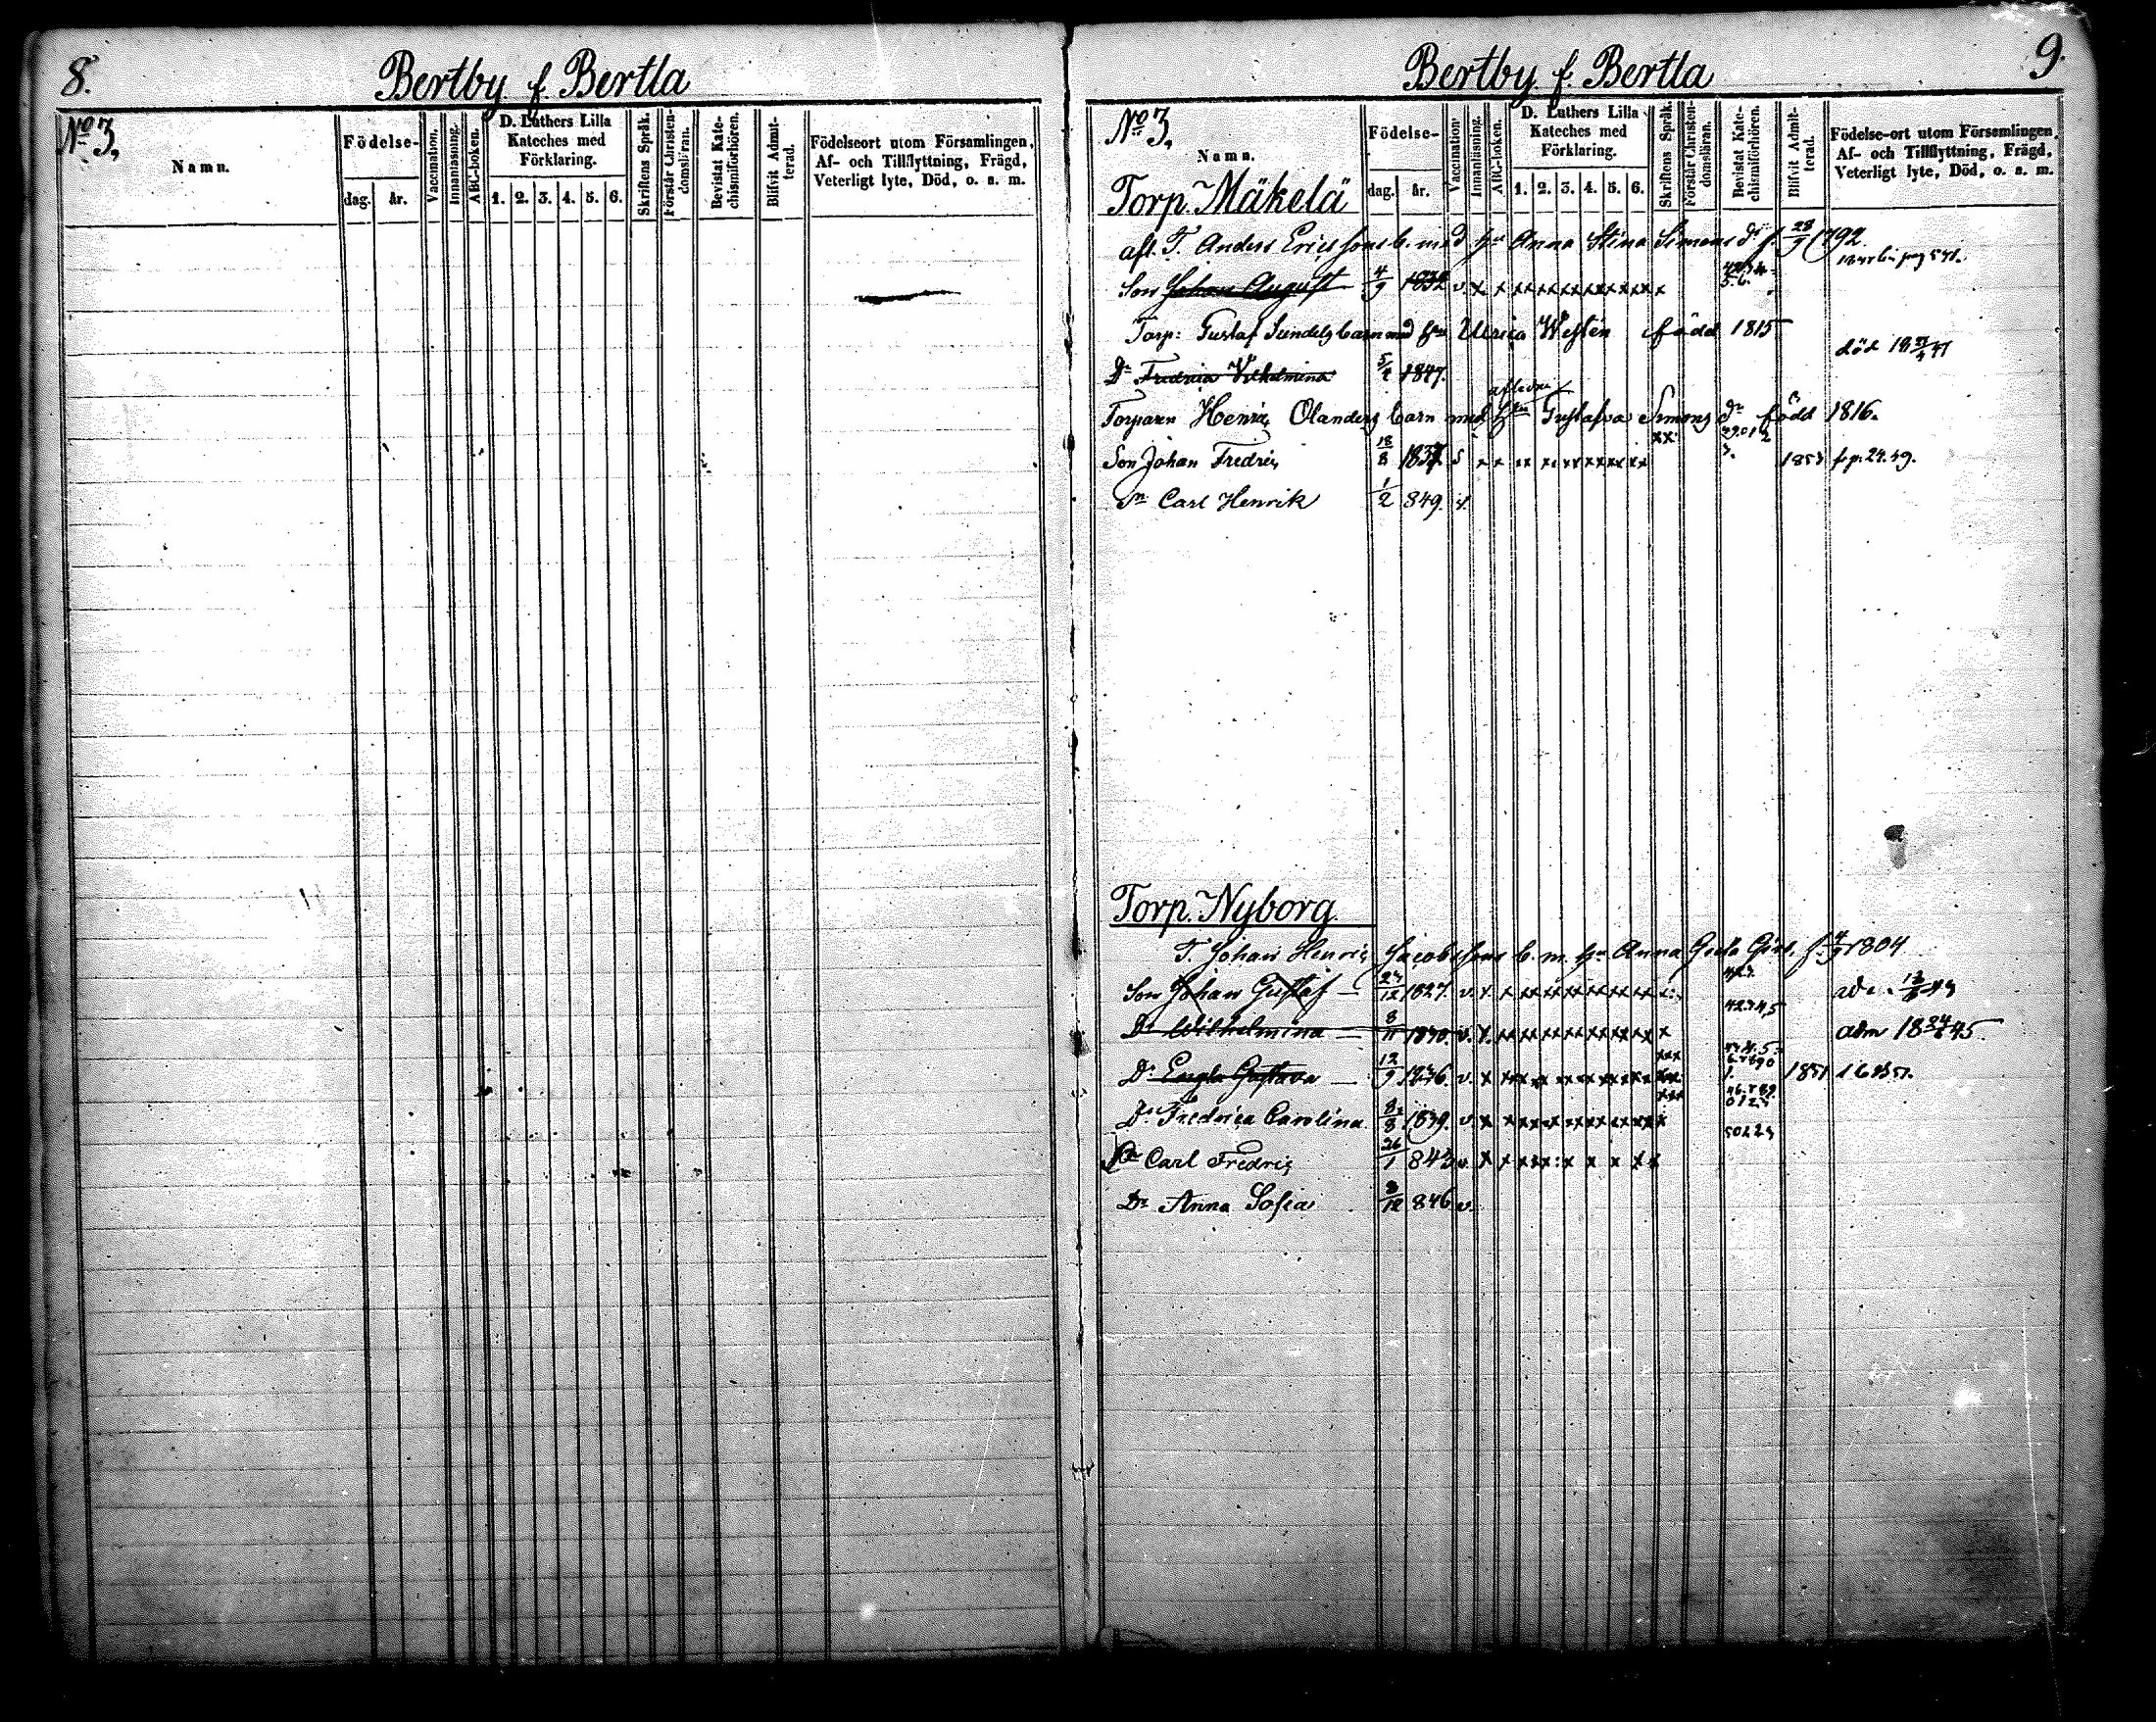 8.
Bertby f. Bertla
No 3.
Namn.
Födelse-
dag. år.
Vaccination.
Innanläsning.
ABC-boken.
D. Luthers Lilla
Kateches med
Förklaring.
1. 2. 3. 4. 5. 6.
Skriftens Språk.
Förstår Christen-
domsläran.
Bevistat Kate-
chismiförhören.
Blifvit Admit-
terad.
Födelseort utom Församlingen,
Af- och Tillflyttning, Frägd,
Veterligt lyte, Död, o. s. m.
9.
Bertby f. Bertla
No 3.
Namn.
Födelse-
dag. år.
Vaccination.
Innanläsning.
ABC-boken.
D. Luthers Lilla
Kateches med
Förklaring.
1. 2. 3. 4. 5. 6.
Skriftens Språk.
Förstår Christen-
domsläran.
Bevistat Kate-
chismiförhören.
Blifvit Admit-
terad.
Födelse-ort utom Församlingen,
Af- och Tillflyttning, Frägd,
Veterligt lyte, Död, o. s. m.
Torp. Mäkelä
afl. T. Anders Ericssons b. med Anna Stina Simons dr f. 28/9 1792.
Son Johan August 4/9 1832 v. x x xx xx xx xx xx xx x
Torp: Gustaf Sundelz barn med Ulrica Westen född 1815
Dr Fredrica Vilhelmina 5/4 1847. död
aflidne
Torparen Henric Olanders barn med Gustafva Simons dr född 1816.
Son Johan Fredric 18/8 1837 x x xx xx xx xx xx xx 1853 f p. 24. 49.
Sn Carl Henrik 1/2 849. v.
Torp. Nyborg
T. Johan Henric Jacobssons b. m. Anna Greta f. 4/9 1804
Son Johan Gustaf 27/12 1827. v. x. x xx xx xx xx xx xx
Dr Wilhelmina 8/11 1830. v. x. xx xx xx xx xx xx x adm 18 45.
Dr Gustava 12/9 1836. v. x 1851
Dr Fredrica Carolina 8/8 1839. v. x
Sn Carl Fredric 26/1 843 v. x
Dr Anna Sofia 8/12 846 v.